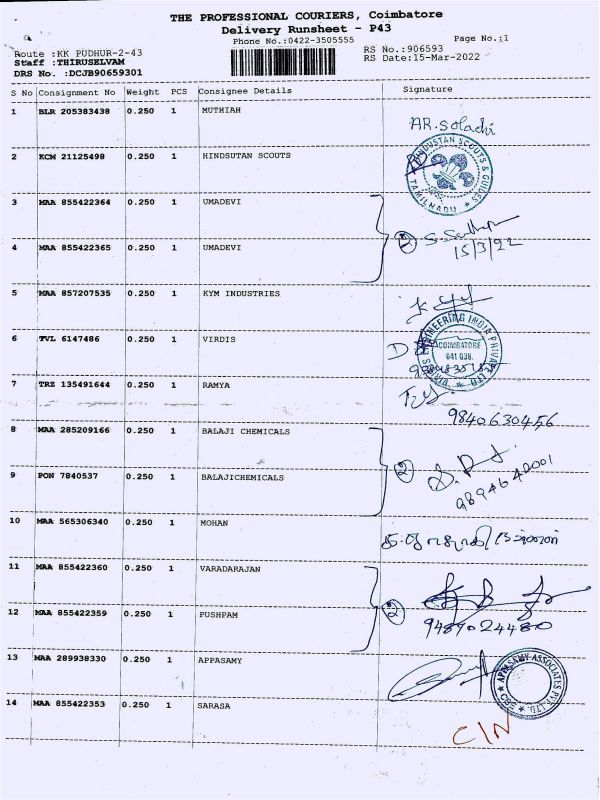 THE PROFESSIONAL COURIERS, Coimbatore
Delivery Runsheet - P43
Phone No.:0422-3505555 Page No.:1
Route :KK PUDHUR-2-43 RS No.:906593
Staff :THIRUSELVAM RS Date:15-Mar-2022
DRS No. :DCJB90659301
S No Consignment No Weight PCS Consignee Details Signature
1 BLR 205383438 0.250 1 MUTHIAH
2 KCM 21125498 0.250 1 HINDSUTAN SCOUTS
HINDUSTAN SCOUTS & GUIDES
TAMILNADU
3 MAA 855422364 0.250 1 UMADEVI
4 MAA 855422365 0.250 1 UMADEVI
2
15/3/22
5 MAA 857207535 0.250 1 KYM INDUSTRIES
6 TVL 6147486 0.250 1 VIRDIS
ENGINEERING INDIA PRIVATE LTD
COIMBATORE
641 038.
7 TRZ 135491644 0.250 1 RAMYA
9840630456
8 MAA 285209166 0.250 1 BALAJI CHEMICALS
9 PON 7840537 0.250 1 BALAJICHEMICALS
2
9894642001
10 MAA 565306340 0.250 1 MOHAN
11 MAA 855422360 0.250 1 VARADARAJAN
12 MAA 855422359 0.250 1 PUSHPAM
2
9489024480
13 MAA 289938330 0.250 1 APPASAMY
APPASAMY ASSOCIATES PVT. LTD.
CBE
14 MAA 855422353 0.250 1 SARASA
C/N